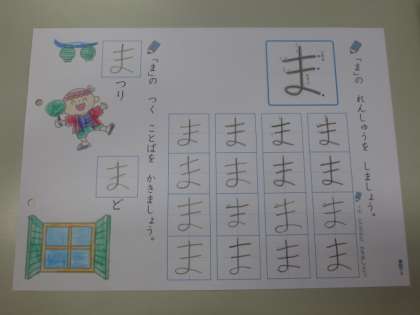 「ま」の れんしゅうを しましょう。
ま
ま ま ま ま
ま ま ま ま
ま ま ま ま
ま ま ま ま
「ま」の つく ことばを かきましょう。
まつり
まど